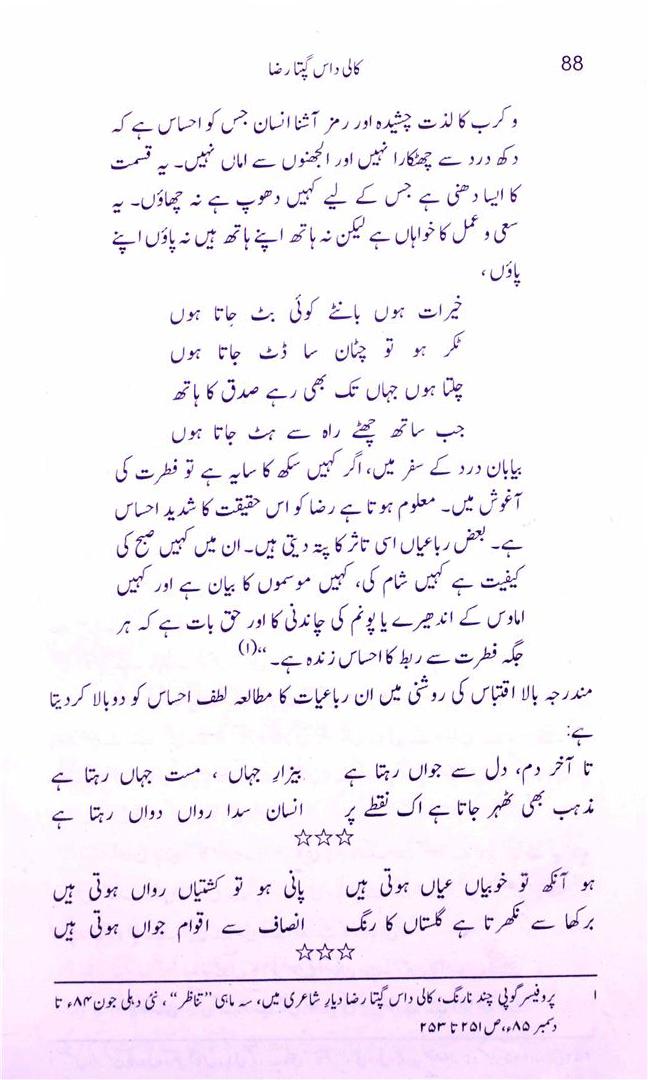 88
کالی داس گپتا رضا
و کرب کا لذت چشیدہ اور رمز آشنا انسان جس کو احساس ہے کہ
دکھ درد سے چھٹکارا نہیں اور الجھنوں سے اماں نہیں۔ یہ قسمت
کا ایسا دھنی ہے جس کے لیے کہیں دھوپ ہے نہ چھاؤں۔ یہ
سعی و عمل کا خواہاں ہے لیکن نہ ہاتھ اپنے ہاتھ ہیں نہ پاؤں اپنے
پاؤں،
خیرات ہوں بانٹے کوئی بٹ جاتا ہوں
ٹکر ہو تو چٹان سا ڈٹ جاتا ہوں
چلتا ہوں جہاں تک بھی رہے صدق کا ہاتھ
جب ساتھ چھٹے راہ سے ہٹ جاتا ہوں
بیابان درد کے سفر میں، اگر کہیں سکھ کا سایہ ہے تو فطرت کی
آغوش میں۔ معلوم ہوتا ہے رضا کو اس حقیقت کا شدید احساس
ہے۔ بعض رباعیاں اسی تاثر کا پتہ دیتی ہیں۔ ان میں کہیں صبح کی
کیفیت ہے کہیں شام کی، کہیں موسموں کا بیان ہے اور کہیں
اماوس کے اندھیرے یا پونم کی چاندنی کا اور حق بات ہے کہ ہر
جگہ فطرت سے ربط کا احساس زندہ ہے۔“(۱)
مندرجہ بالا اقتباس کی روشنی میں ان رباعیات کا مطالعہ لطف احساس کو دوبالا کردیتا
ہے:
تا آخر دم، دل سے جواں رہتا ہے بیزارِ جہاں ، مست جہاں رہتا ہے
مذہب بھی ٹھہر جاتا ہے اک نقطے پر انسان سدا رواں دواں رہتا ہے
☆☆☆
ہو آنکھ تو خوبیاں عیاں ہوتی ہیں پانی ہو تو کشتیاں رواں ہوتی ہیں
برکھا سے نکھرتا ہے گلستاں کا رنگ انصاف سے اقوام جواں ہوتی ہیں
☆☆☆
۱ پروفیسر گوپی چند نارنگ، کالی داس گپتا رضا دیار شاعری میں، سہ ماہی ”تناظر“، نئی دہلی جون ۸۴ء تا
دسمبر ۸۵ء، ص ۲۵۱ تا ۲۵۳